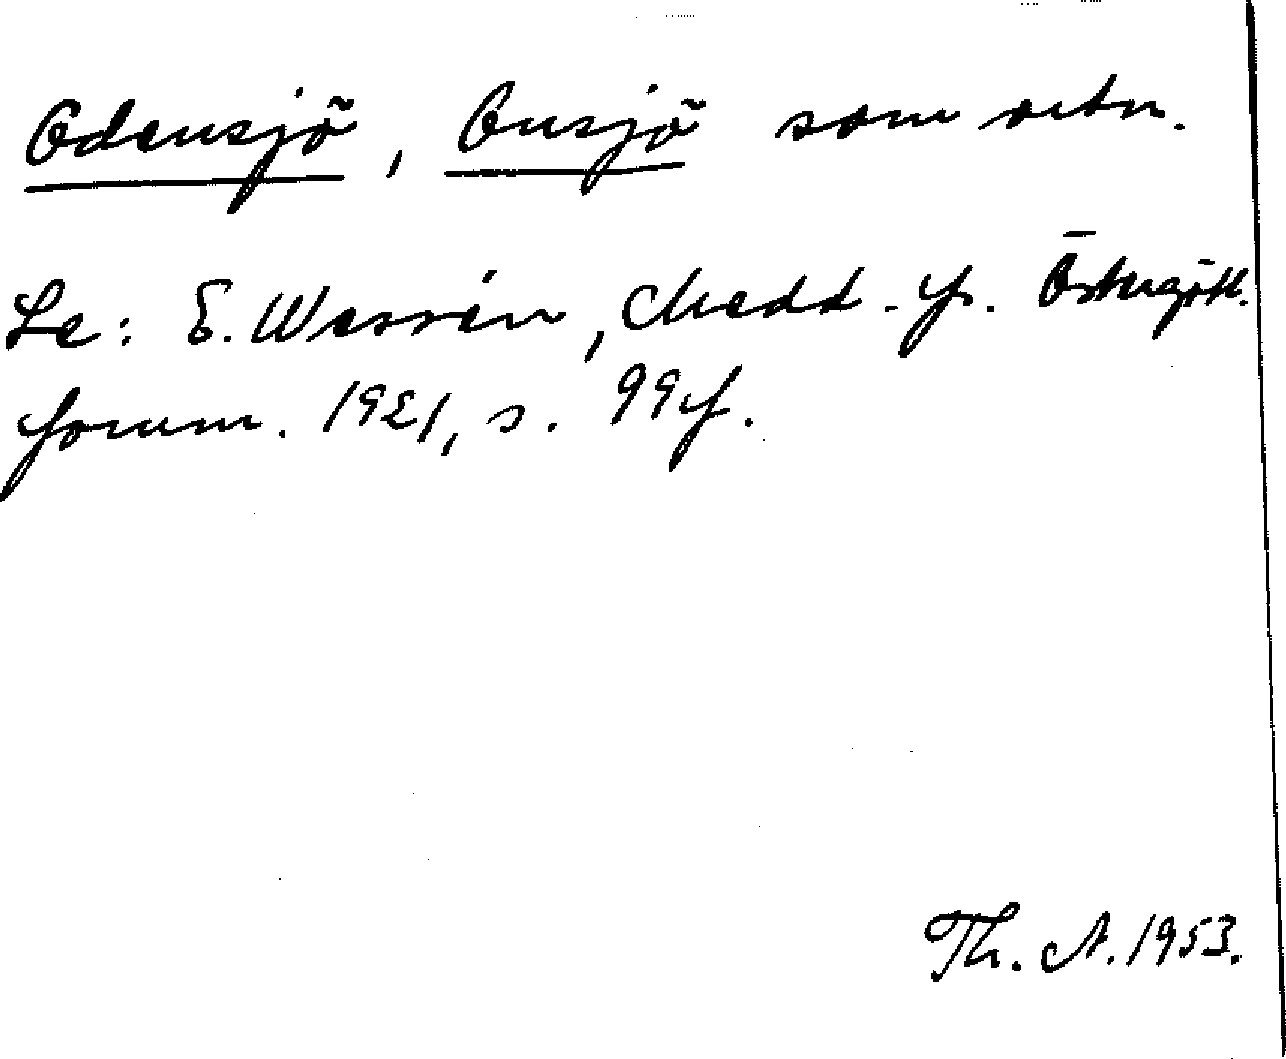 Odensjö, Onsjö som ortn.
Se: E. Wessén, Medd. fr. Östergötl.
fornm. 1921, s. 99 f.
Th. A. 1953.